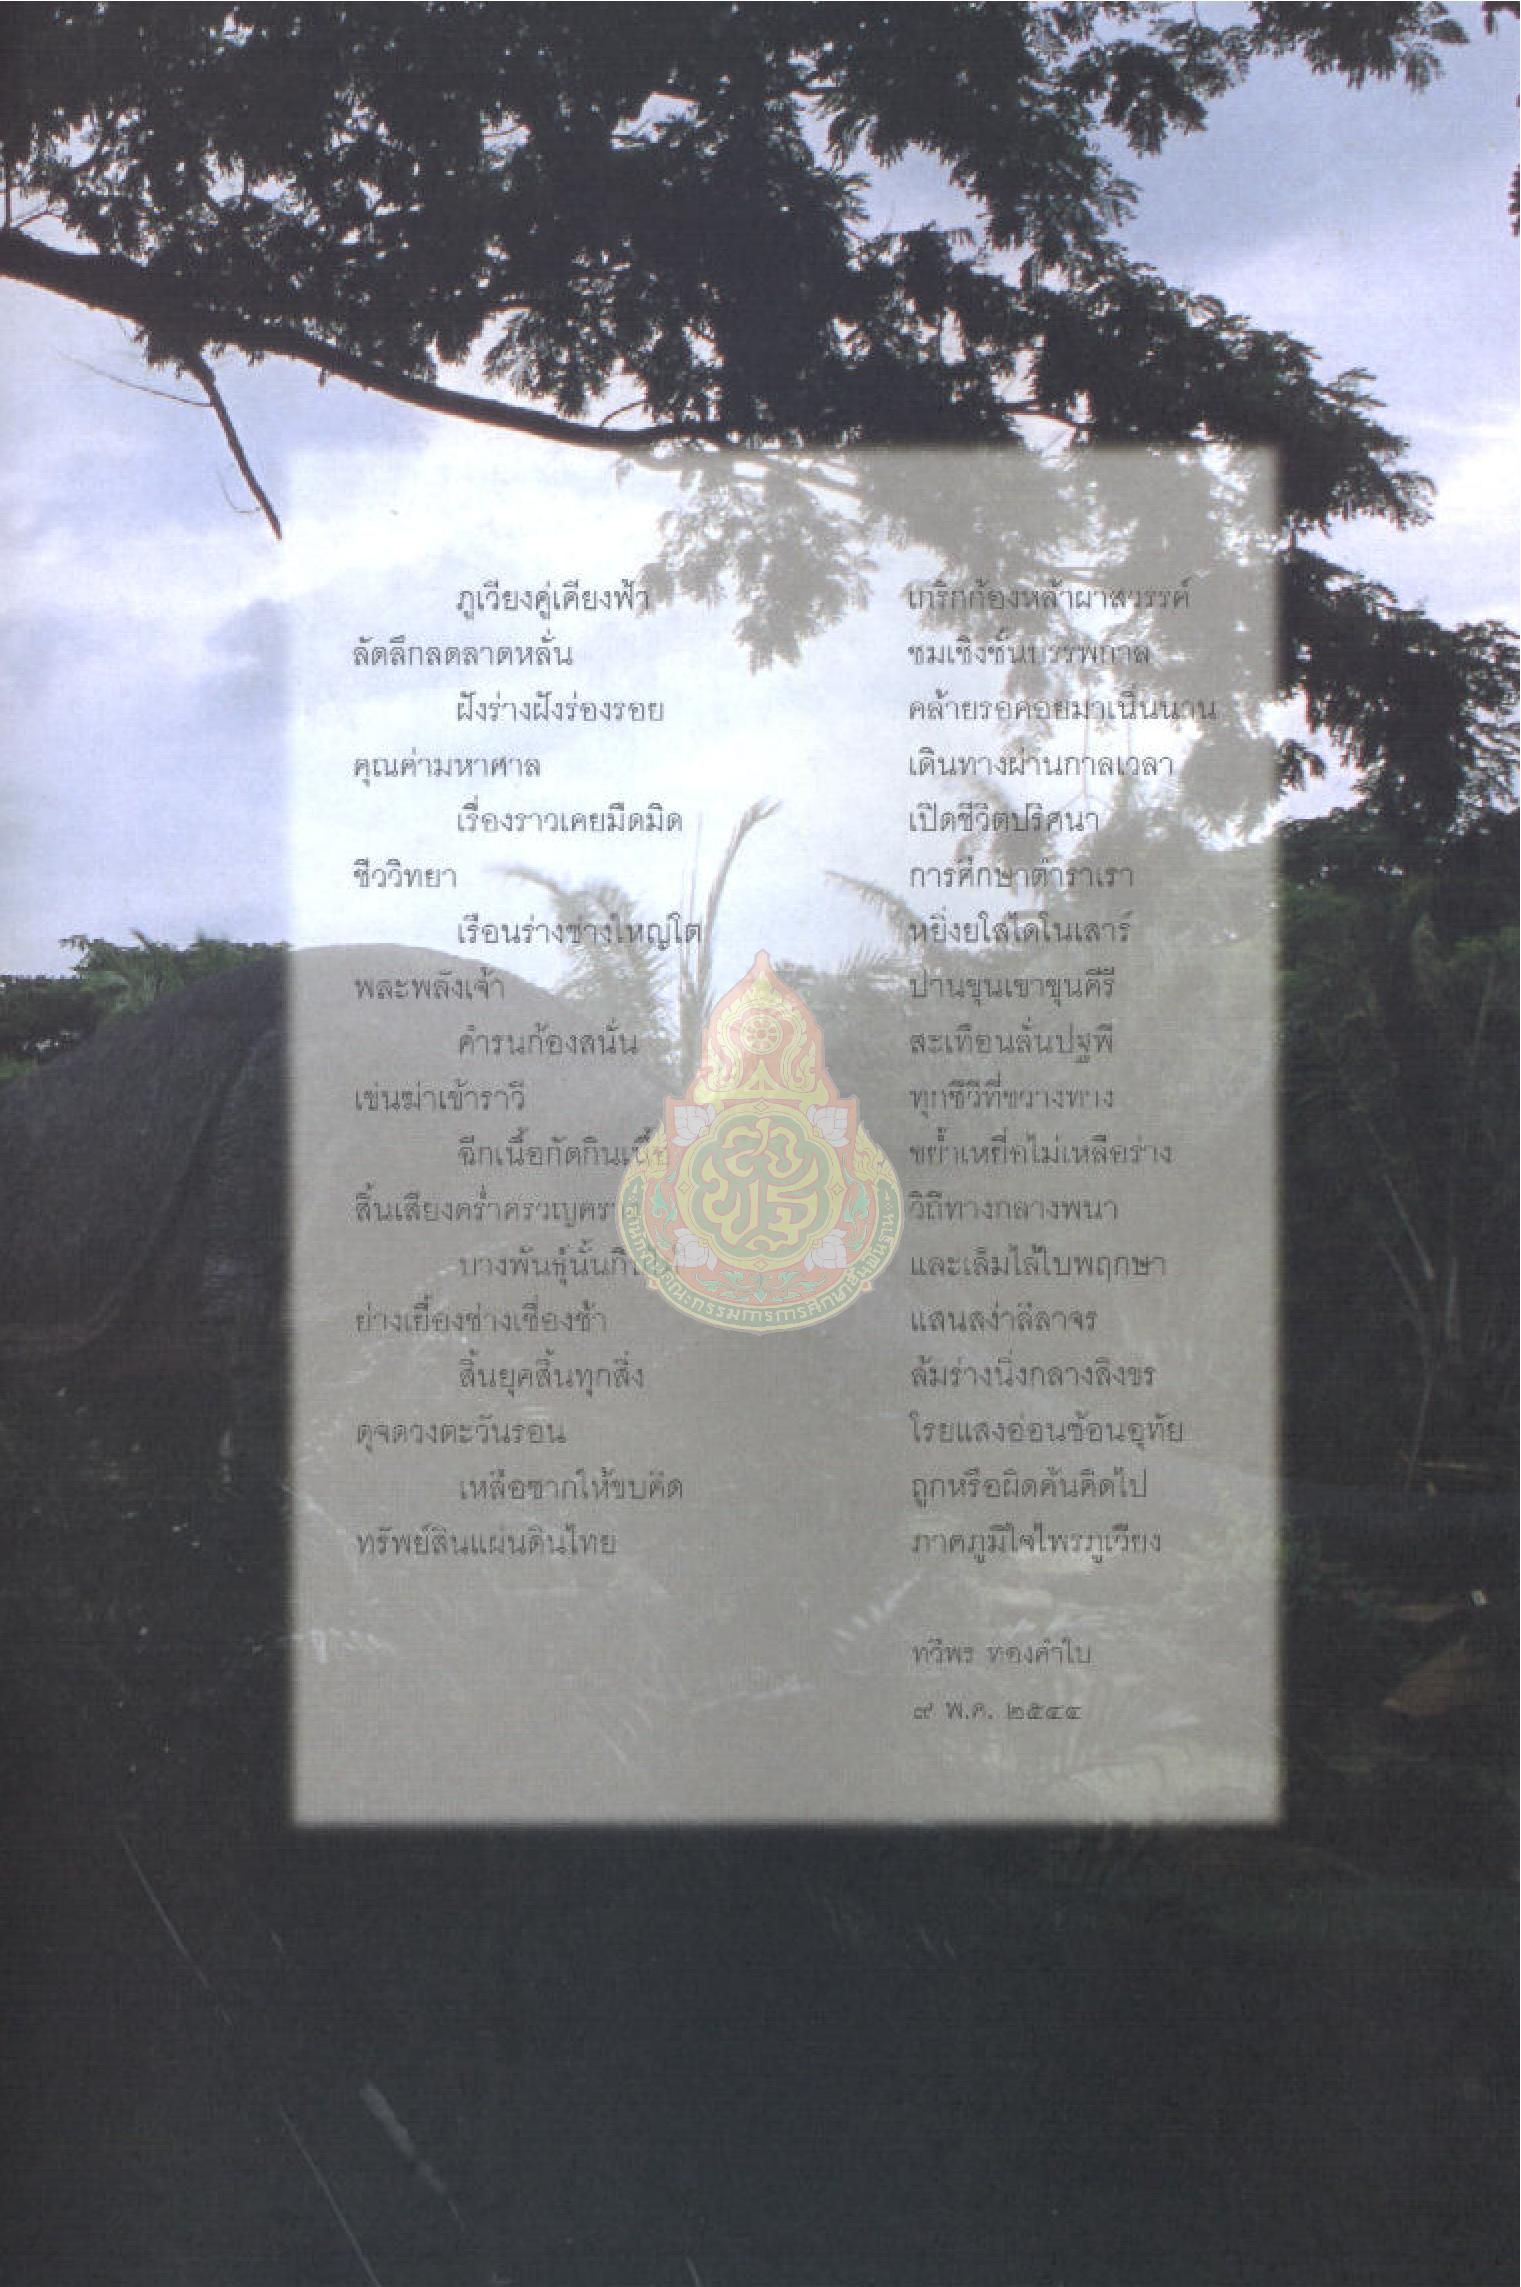 ภูเวียงคู่เคียงฟ้า เกริกก้องหล้าผาสวรรค์
ลัดลึกลดลาดหลั่น ชมเชิงชั้นบรรพกาล
ฝังร่างฝังร่องรอย คล้ายรอคอยมาเนิ่นนาน
คุณค่ามหาศาล เดินทางผ่านกาลเวลา
เรื่องราวเคยมืดมิด เปิดชีวิตปริศนา
ชีววิทยา การศึกษาตำราเรา
เรือนร่างช่างใหญ่โต หยิ่งยโสโดโนเสาร์
พละพลังเจ้า ปานขุนเขาขุนคีรี
คำรนก้องสนั่น สะเทือนลั่นปฐพี
เข่นฆ่าเข้าราวี ทุกชีวีที่ขวางทาง
ฉีกเนื้อกัดกินเนื้อ ขย้ำเหยื่อไม่เหลือร่าง
สิ้นเสียงคร่ำครวญคราง วิถีทางกลางพนา
บางพันธุ์นั้นกิน และเล็มไล้ใบพฤกษา
ย่างเยื้องช่างเชื่องช้า แสนสง่าลีลาจร
สิ้นยุคสิ้นทุกสิ่ง ล้มร่างนิ่งกลางสิงขร
ดุจดวงตะวันรอน โรยแสงอ่อนซ้อนอุทัย
เหลือซากให้ขบคิด ถูกหรือผิดค้นคิดไป
ทรัพย์สินแผ่นดินไทย ภาคภูมิใจไพรภูเวียง
ทวีพร ทองคำใบ
๙ พ.ค. ๒๕๔๔
สำนักงานคณะกรรมการการศึกษาขั้นพื้นฐาน